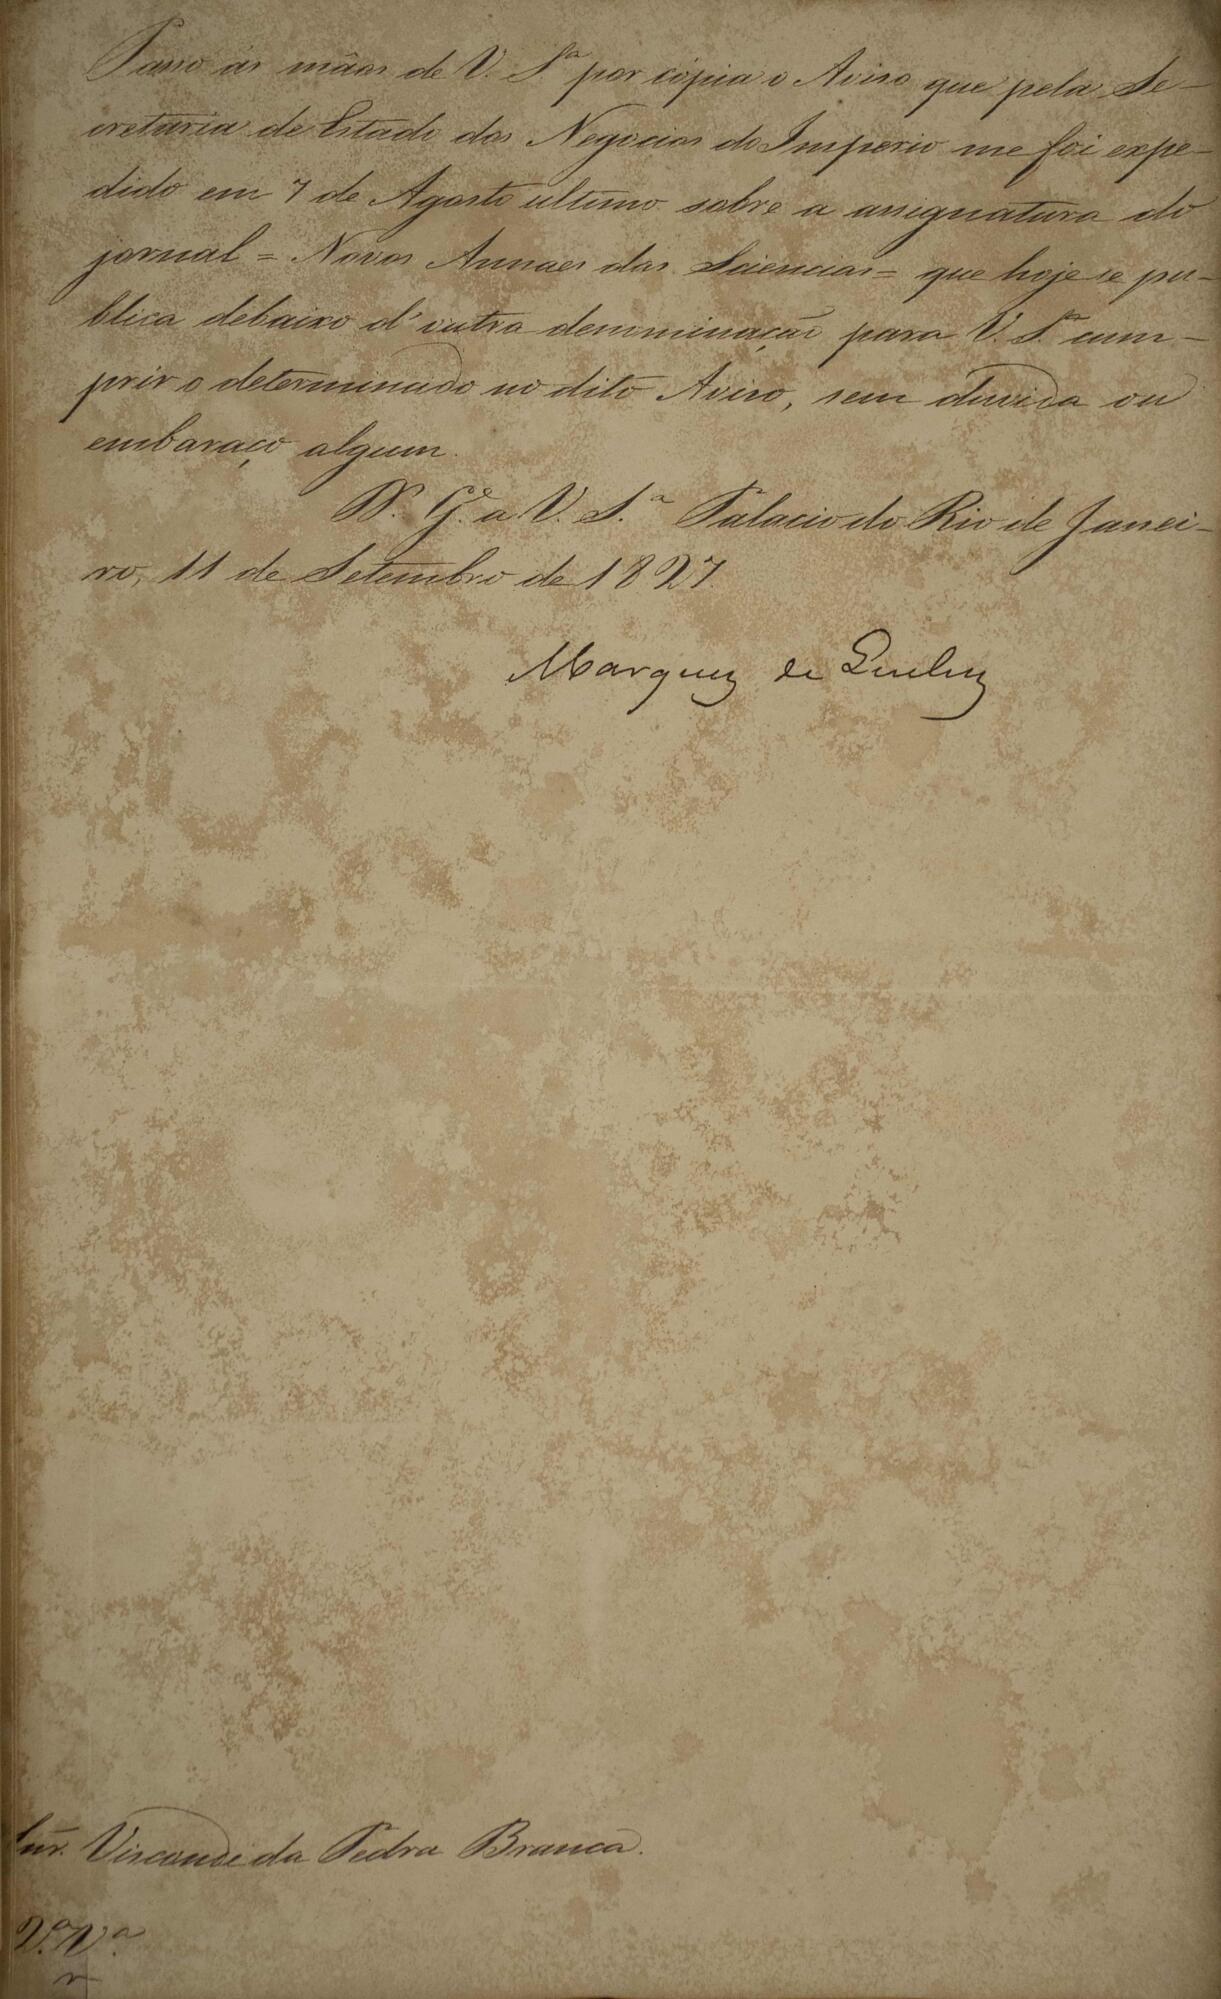 Passo ás mãos de V. S.ª por cópia o Aviso que pela Se-
cretaria de Estado dos Negocios do Imperio me foi expe-
dido em 7 de Agosto ultimo sobre a assignatura do
jornal = Novos Annaes das Sciencias = que hoje se pu-
blica debaixo d'outra denominação para V. S.ª cum-
prir o determinado no dito Aviso, sem duvida ou
embaraço algum.
D.s G.e a V. S.ª Palacio do Rio de Janei-
ro, 11 de Setembro de 1827.
Marquez de Queluz
Snr. Visconde da Pedra Branca.
2.ª V.ª